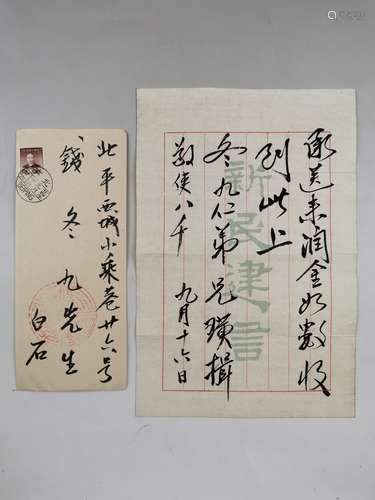 北平西城小乘巷廿六号
錢冬九先生
白石
承送来润金如數收
到此上
冬九仁弟 兄璜揖
敬使八千 九月十六日
新民建言